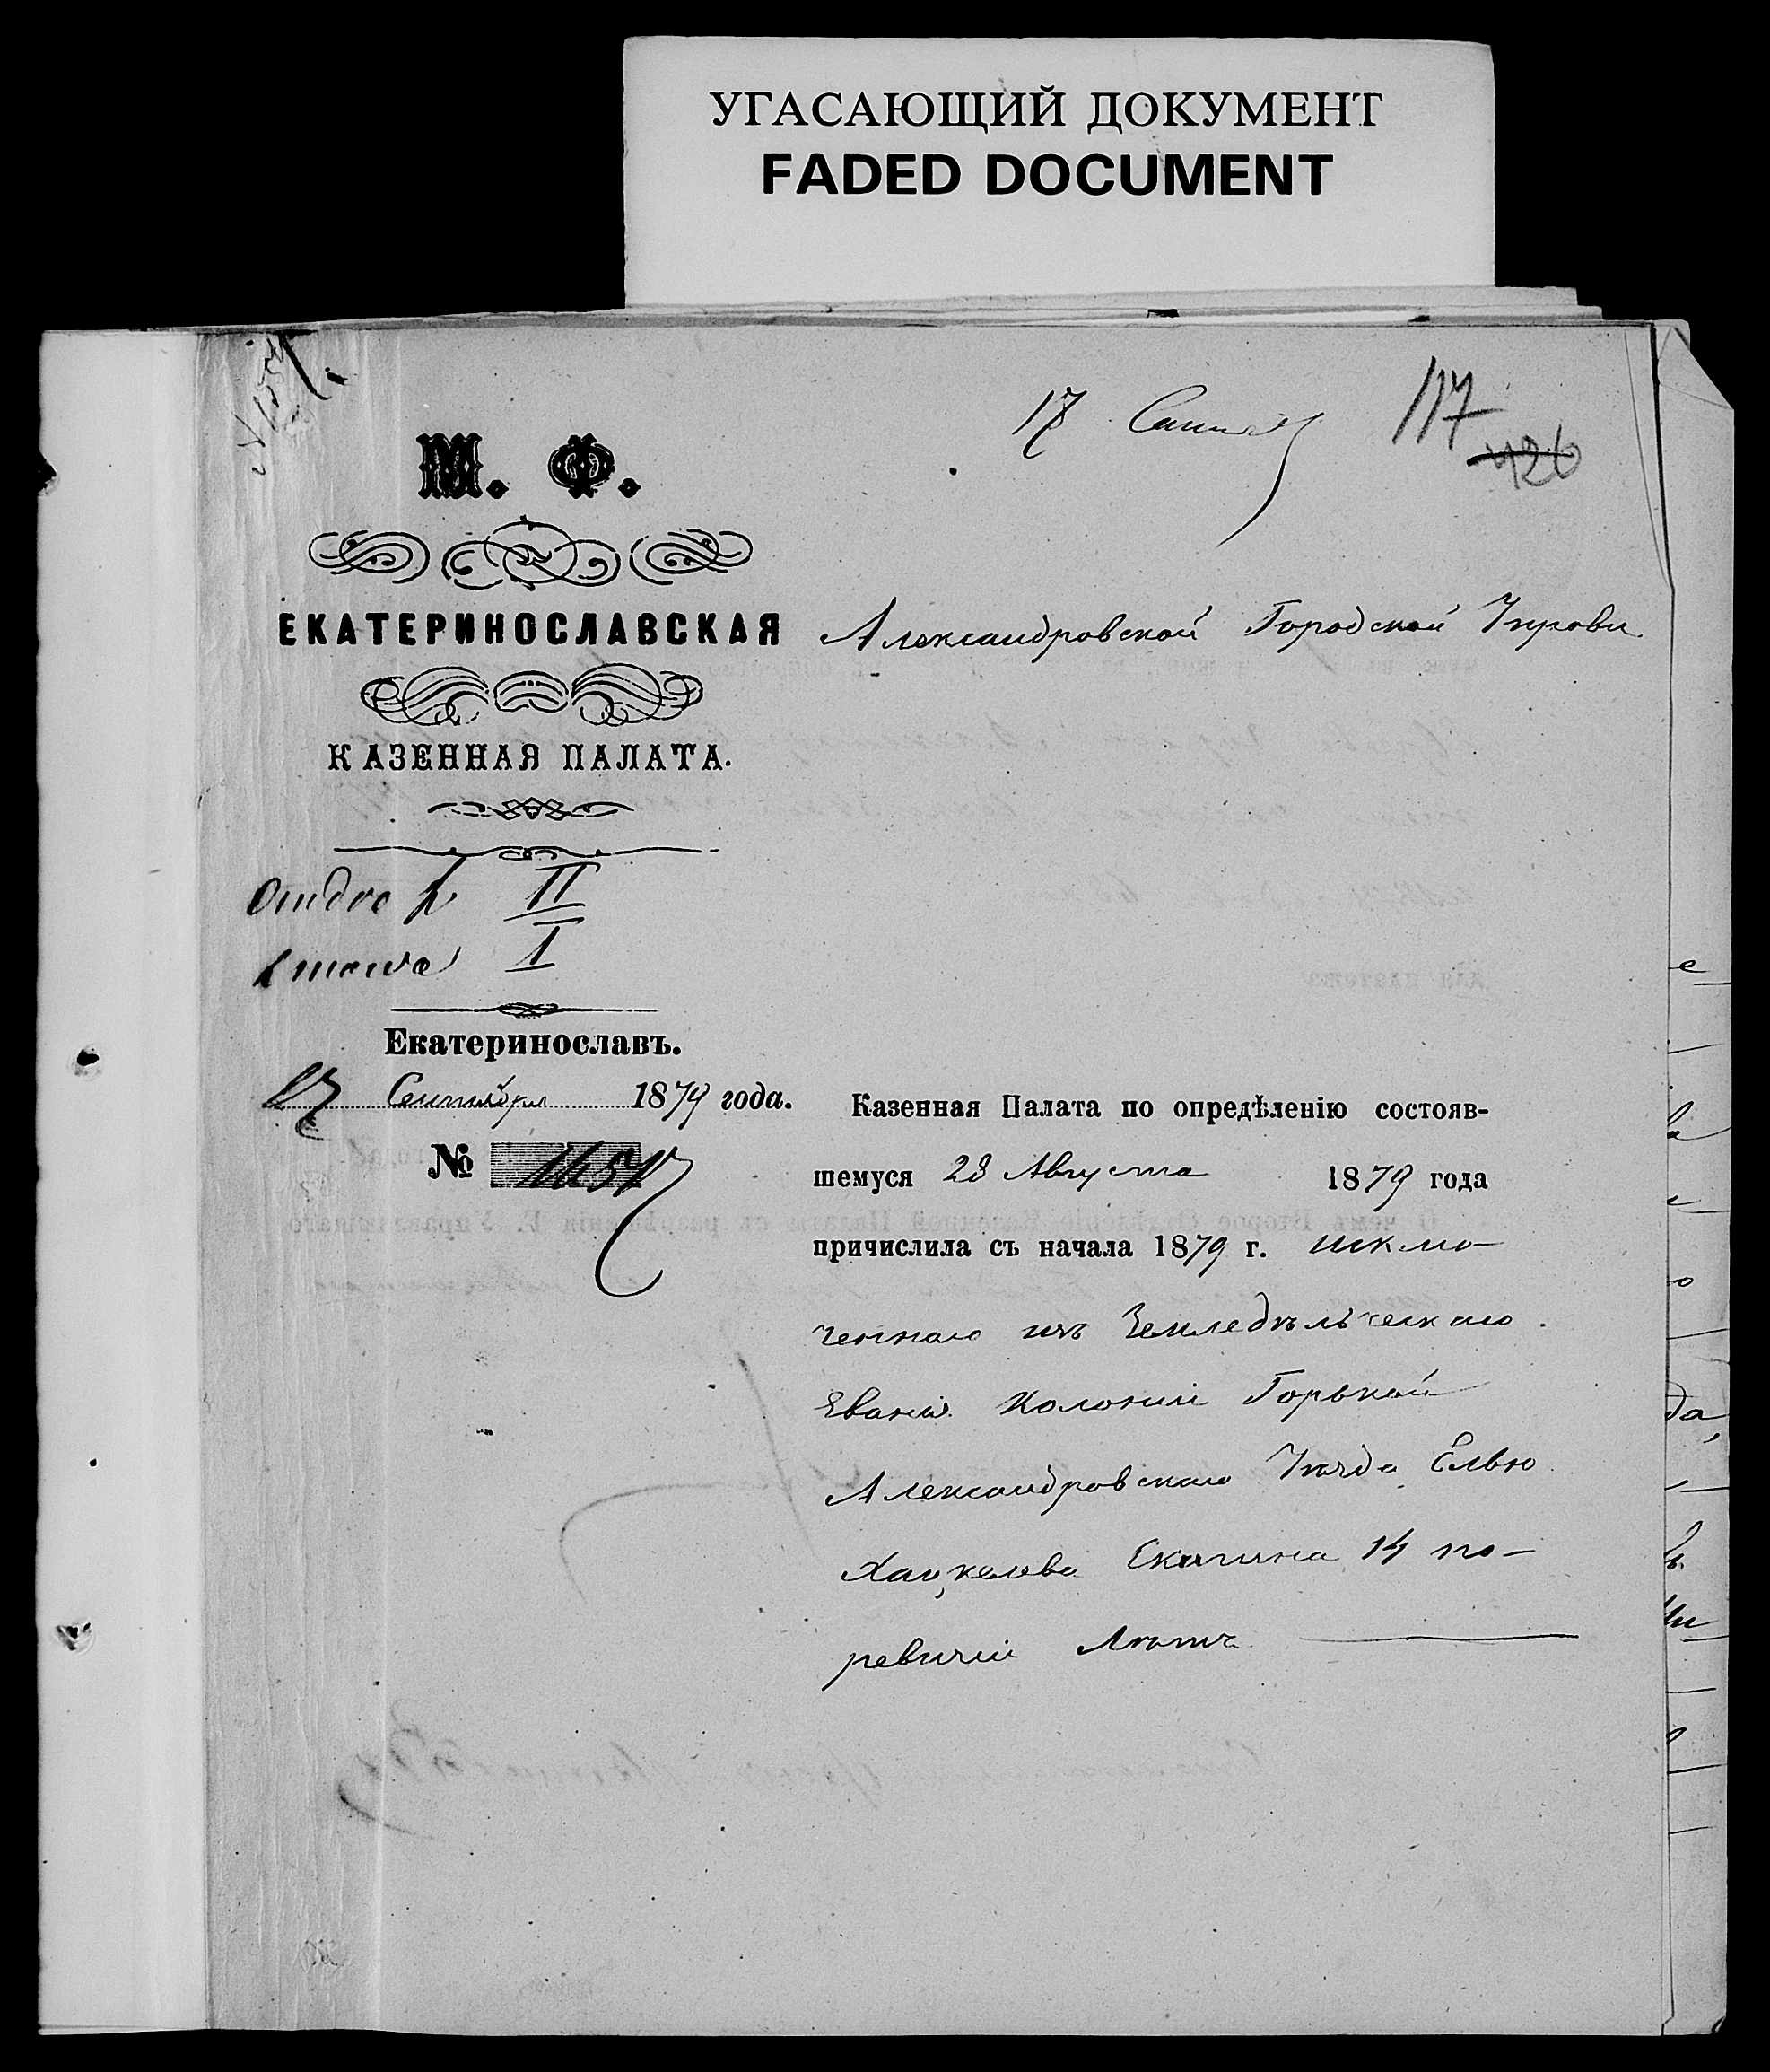 УГАСАЮЩИЙ ДОКУМЕНТ
FADED DOCUMENT
17
117
426
М. Ф.
ЕКАТЕРИНОСЛАВСКАЯ
КАЗЕННАЯ ПАЛАТА.
II
I
Екатеринославъ.
Сентября 1879 года.
№
Александровской Городской Управѣ
Казенная Палата по опредѣленію состояв-
шемуся 28 Августа 1879 года
причислила съ начала 1879 г. исклю-
ченнаго изъ Земледѣльческаго
званія Колоніи Горькой
Александровскаго Уѣзда
Хацкелева 14 по-